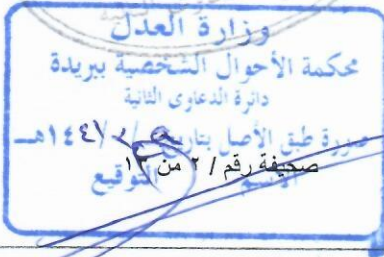 وزارة العدل
محكمة الأحوال الشخصية ببريدة
دائرة الدعاوى الثانية
صورة طبق الأصل بتاريخ / / ١٤٤١هـ
صحيفة رقم / ٢ من ١٣
الاسم التوقيع